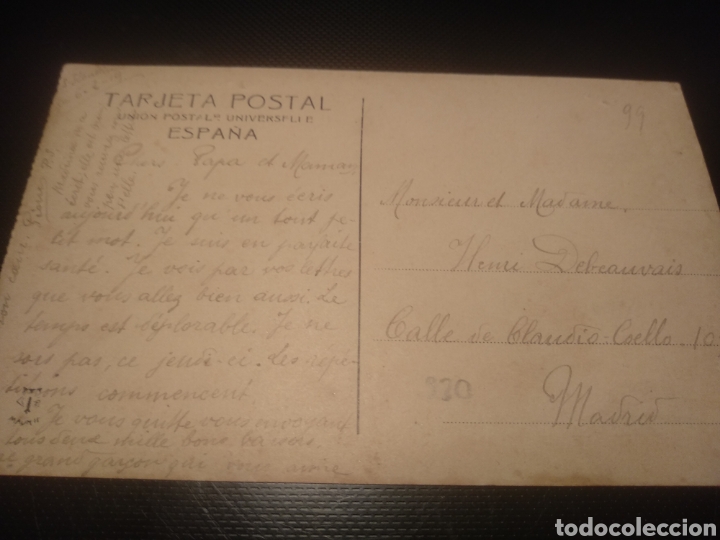 TARJETA POSTAL
UNION POSTALE UNIVERSELLE
ESPAÑA
Chers Papa et Maman
Je ne vous écris
aujourd'hui qu'un tout pe-
tit mot. Je suis en parfaite
santé. Je vois par vos lettres
que vous allez bien aussi. Le
temps est déplorable. Je ne
sors pas, ce jeudi-ci. Les répé-
titions commencent.
Je vous quitte vous envoyant
tous deux mille bons baisers.
grand garçon qui vous
99
Monsieur et Madame
Henri Debeauvais
Calle de Claudio Coello. 10
Madrid
930
todocoleccion